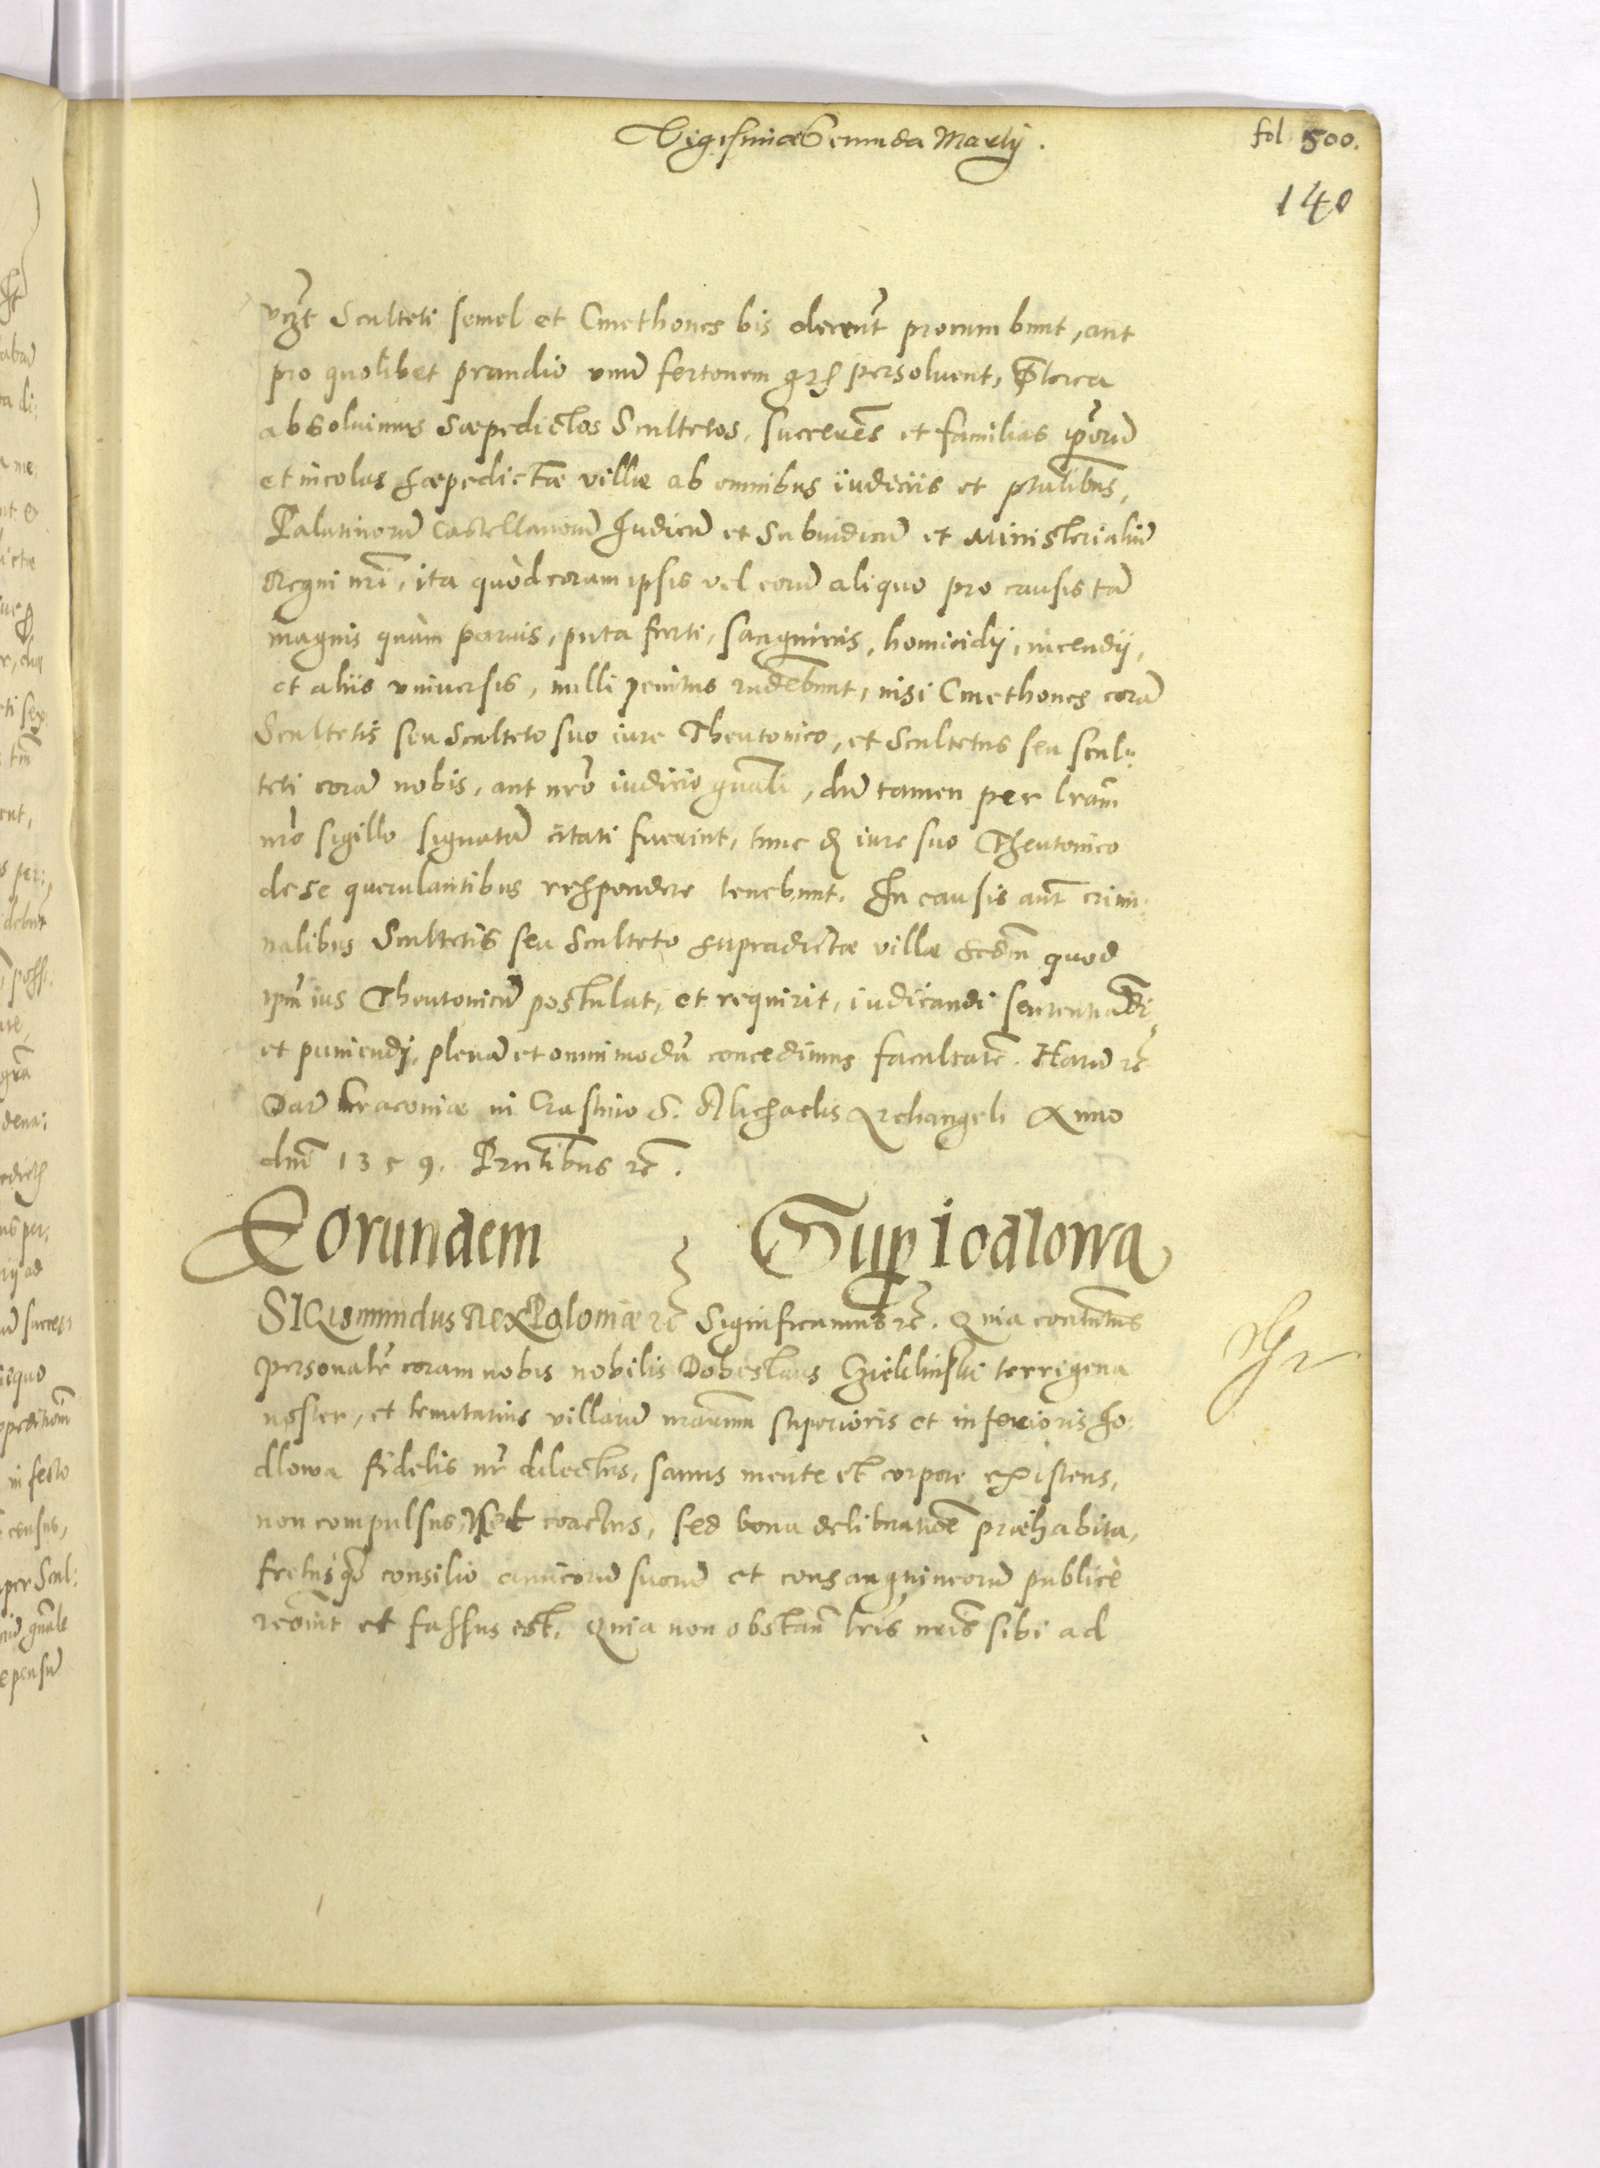 Vigesima Secunda Martij.
fol. 500.
140
vczt Sculteti semel et Cmethones bis decernt procurabunt, aut
pro quolibet prandio vnu fertonem grs persoluent, Pterea
absoluimus Sæpedictos Scultetos, succeres et familias ipsoru
et incolas sæpedictæ villæ ab omnibus iudiciis et ptatibus,
Palatinoru Castellanoru Iudicu et Subiudicu et Ministerialiu
Regni nri, ita quòd coram ipsis vel eoru aliquo pro causis tã
magnis quàm paruis, puta furti, sanguinis, homicidij, incendij,
et aliis vniuersis, nulli penitus rndebunt, nisi Cmethones corã
Scultetis seu Sculteto suo iure Theutonico, et Scultetus seu scul:
teti corã nobis, aut nro iudicio gnali, dũ tamen per lram
nro sigillo signatã citati fuerint, tunc iure suo Theutonico
de se querulantibus respondere tenebunt. In causis aut crimi:
nalibus Scultetis seu Sculteto supradictæ villæ scdm quod
ipm ius Theutonicũ postulat, et requirit, iudicandi sententiandi,
et puniendi, plenã et omnimodã concedimus facultatẽ. Harũ rc
Dat Kracouiæ in Crastino S. Michaelis Archangeli Anno
dni 1359. Pntibus rc.
Eorundem Sup Iodlowa
SIGismundus Rex Poloniæ rc Significamus rc. Quia constitutus
personalr coram nobis nobilis Dobeslaus terrigena
noster, et tenutarius villarũ nrarum superioris et inferioris Io:
dlowa fidelis nr dilectus, sanus mente et corpore existens,
non compulsus, coactus, sed bona deliberatiõe præhabita,
fretusq consilio amicorũ suorũ et consanguineorũ publicè
recõuit et fassus est, Quia non obstan lris nris sibi ad